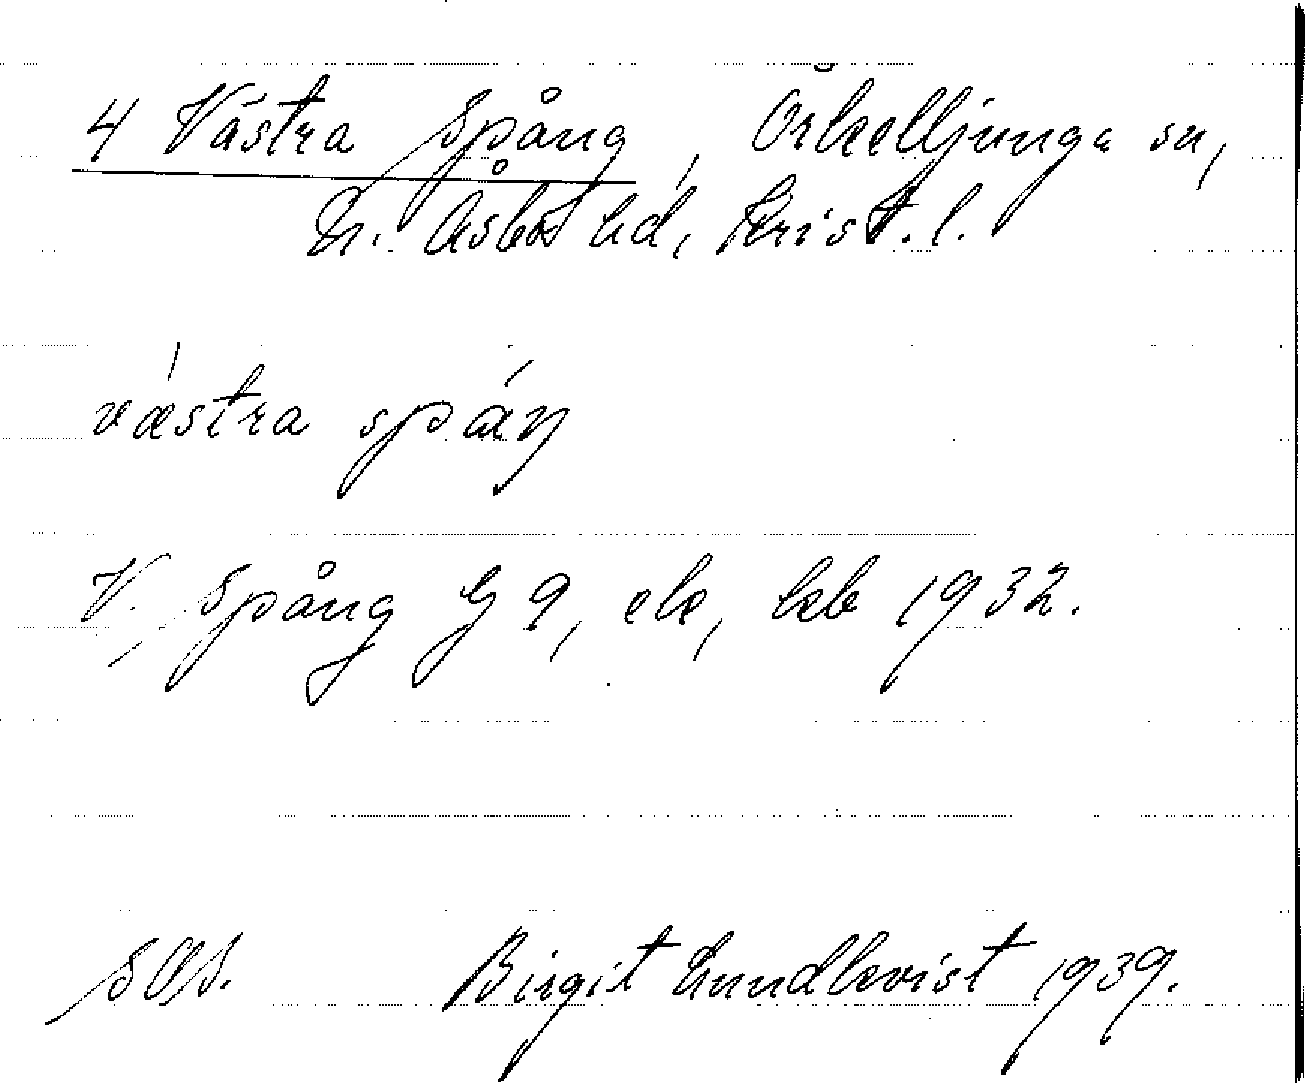 4 Västra Spång, Örkelljunga sn,
N. Åsbo hd, Krist. l.
væstra spáŋ
V. Spång G 9, ek, kb 1932.
SOS. Birgit Lundkvist 1939.